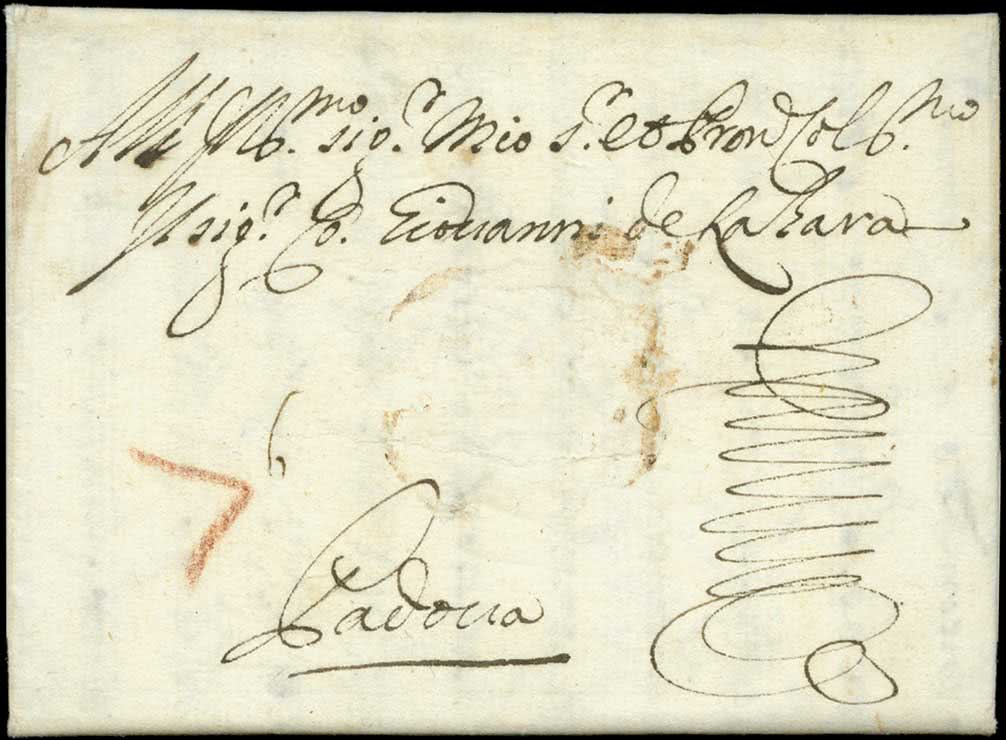 All Ill.mo Sig.r Mio S.r et Pron Col.mo
Il Sig.r Co. Giovanni de Lazara
6
7
Padova